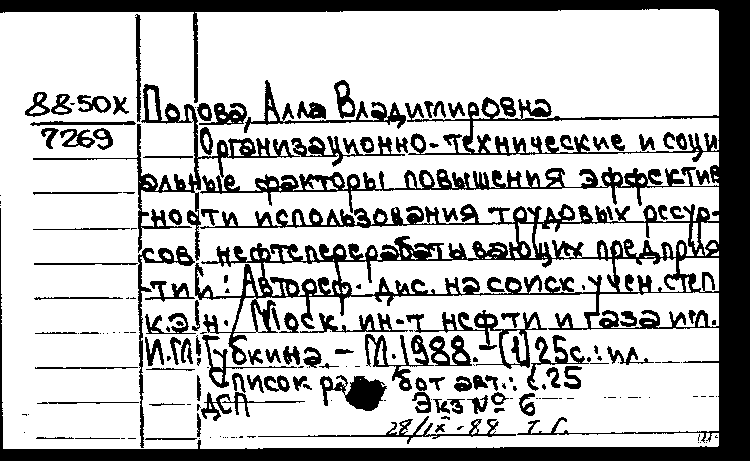 88-50X Попова, Алла Владимировна.
7269 Организационно-технические и соци
альные факторы повышения эффектив
ности использования трудовых ресур-
сов нефтеперерабатывающих предприя
-тий: Автореф. дис. на соиск. учен. степ
к.э.н. Моск. ин-т нефти и газа им.
И.М. Губкина. - М. 1988. - [1] 25 с.: ил.
Список работ авт.: с. 25
ДСП Экз № 6
28/IX-88 Т. Г.